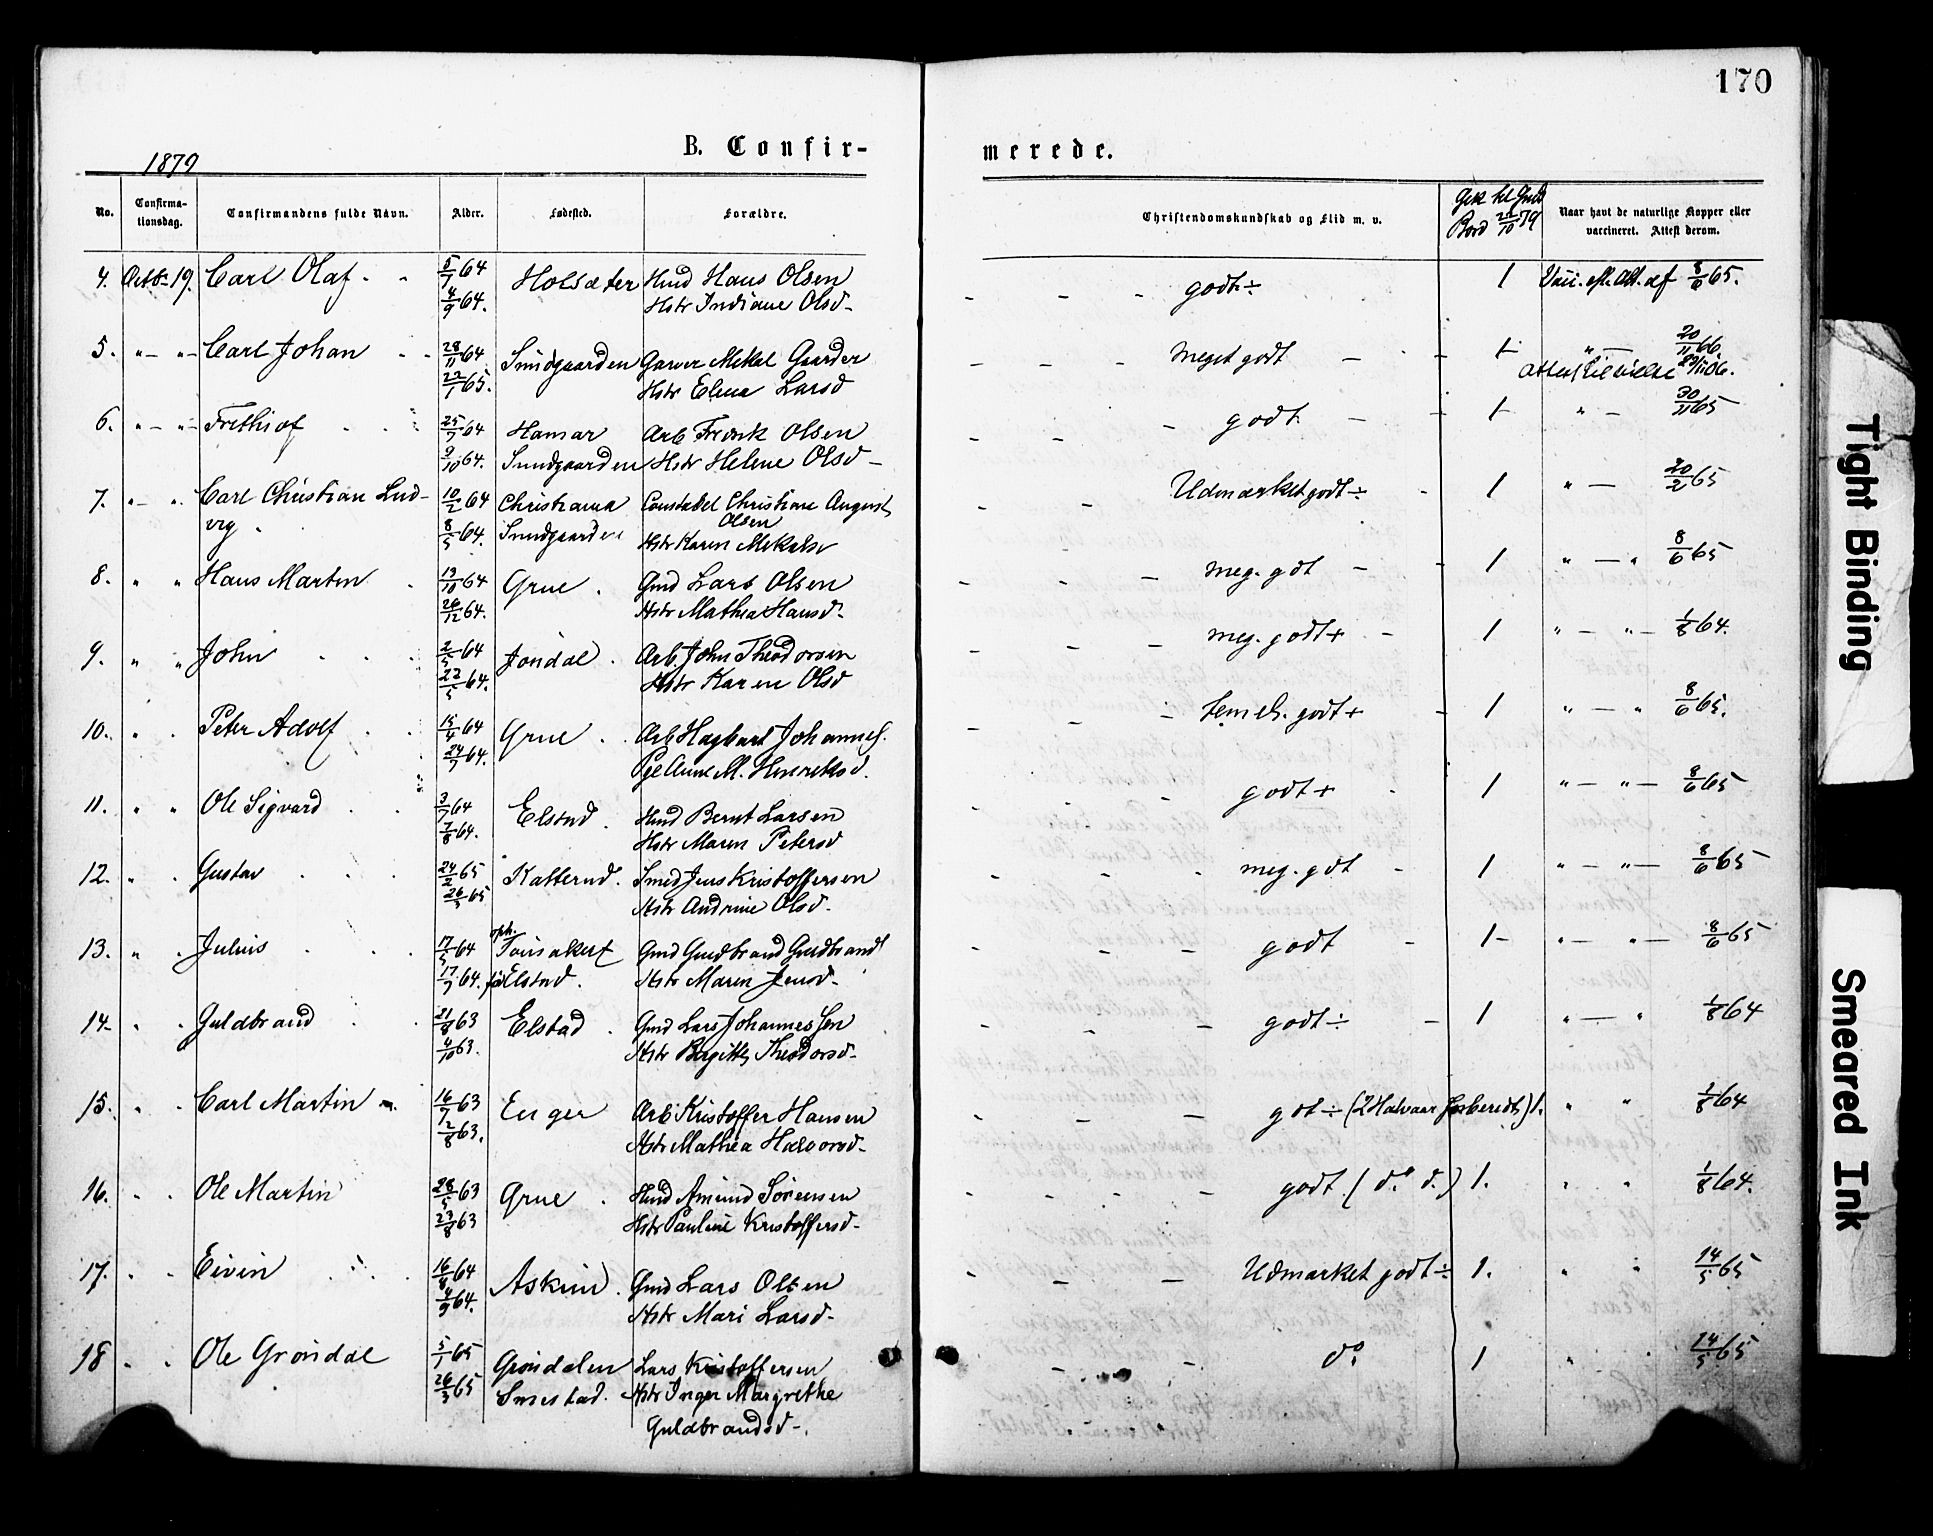 170
B. Confir-
merede.
1879
No.
Confirma-
tionsdag.
Confirmandens fulde Navn.
Alder.
Fødested.
Forældre.
Christendomskundskab og Flid m. v.
Bord 21/10 79
Naar havt de naturlige Kopper eller
vaccineret. Attest derom.
4. Octbr 19. Carl Olaf 5/7 64 Holsæter Hmd Hans Olsen godt ÷ 1 Vacc. eft. Att. af 8/6 65.
4/9 64. Hstr Indiane Olsd-
5. " — " — Carl Johan 28/11 64 Smidgaarden Garver Mikal Gaarder meget godt — 1 " — 20/11 66
22/1 65. Hstr Elena Larsd
6. " — " — Frithiof 25/7 64 Hamar Arb Fredrik Olsen godt — 1 " — 30/11 65
9/10 64. Smidgaarden Hstr Helene Olsd —
7. " — " Carl Christian Lud- 10/2 64 Christiania Constabel Christian August Udmærket godt ÷ 1 " — 20/2 65
vig 8/5 64. Smidgaarden Olsen
Hstr Karen Mikalsd
8. " " Hans Martin 13/10 64 Grue Gmd Lars Olsen meg. godt — 1 " — " 8/6 65
26/12 64. Hstr Mathea Hansd-
9. " " John 2/5 64 Jondal Arb. John Theodorsen meg. godt + 1 " — " — 1/8 64.
22/5 64. Hstr Karen Olsd
10. " " Peter Adolf 15/4 64 Grue Arb Hagbart Johannes. temel. godt + 1 " — " 8/6 65.
24/7 64. Pge Anne M. Henriksd.
11. " " Ole Sigvard 3/7 64 Elstad Hmd Bernt Larsen godt + 1 " — " — 8/6 65
7/8 64. Hstr Maren Petersd
12. " " Gustav 24/2 65 Katterud. Smed Jens Kristoffersen meg. godt 1 " — " — 8/6 65
26/3 65 Hstr Andrine Olsd.
13. " " Julius 17/5 64 oph. Gmd Guldbrand Guldbrands godt 1 " — " — 8/6 65
17/7 64. Elstad. Hstr Maren Jensd-
14. " " Guldbrand 21/8 63 Elstad Gmd Lars Johannessen godt ÷ — 1 " — " 1/8 64
4/10 63. Hstr Birgitte Theodorsd-
15. " " Carl Martin 16/7 63 Enger Arb Kristoffer Hansen godt ÷ (2 Halvaar forberedt) 1. " " 1/8 64
2/8 63. Hstr Mathea Halvorsd-
16. " " Ole Martin 28/5 63 Grue Hmd Amund Sørensen godt (do d.) 1. " " 1/8 64.
23/8 63 Hstr Pauline Kristoffersd-
17. " " Eivin 16/8 64 Askim Gmd Lars Olsen Udmærket godt ÷ 1. " " 14/5 65
4/9 64. Hstr Mari Larsd-
18 " " Ole Grøndal 5/1 65 Grøndalen Lars Kristoffersen do 1 " " 14/5 65
26/3 65 Smestad. Hstr Inger Margrethe
Guldbrandsd-.
Tight Binding
Smeared Ink